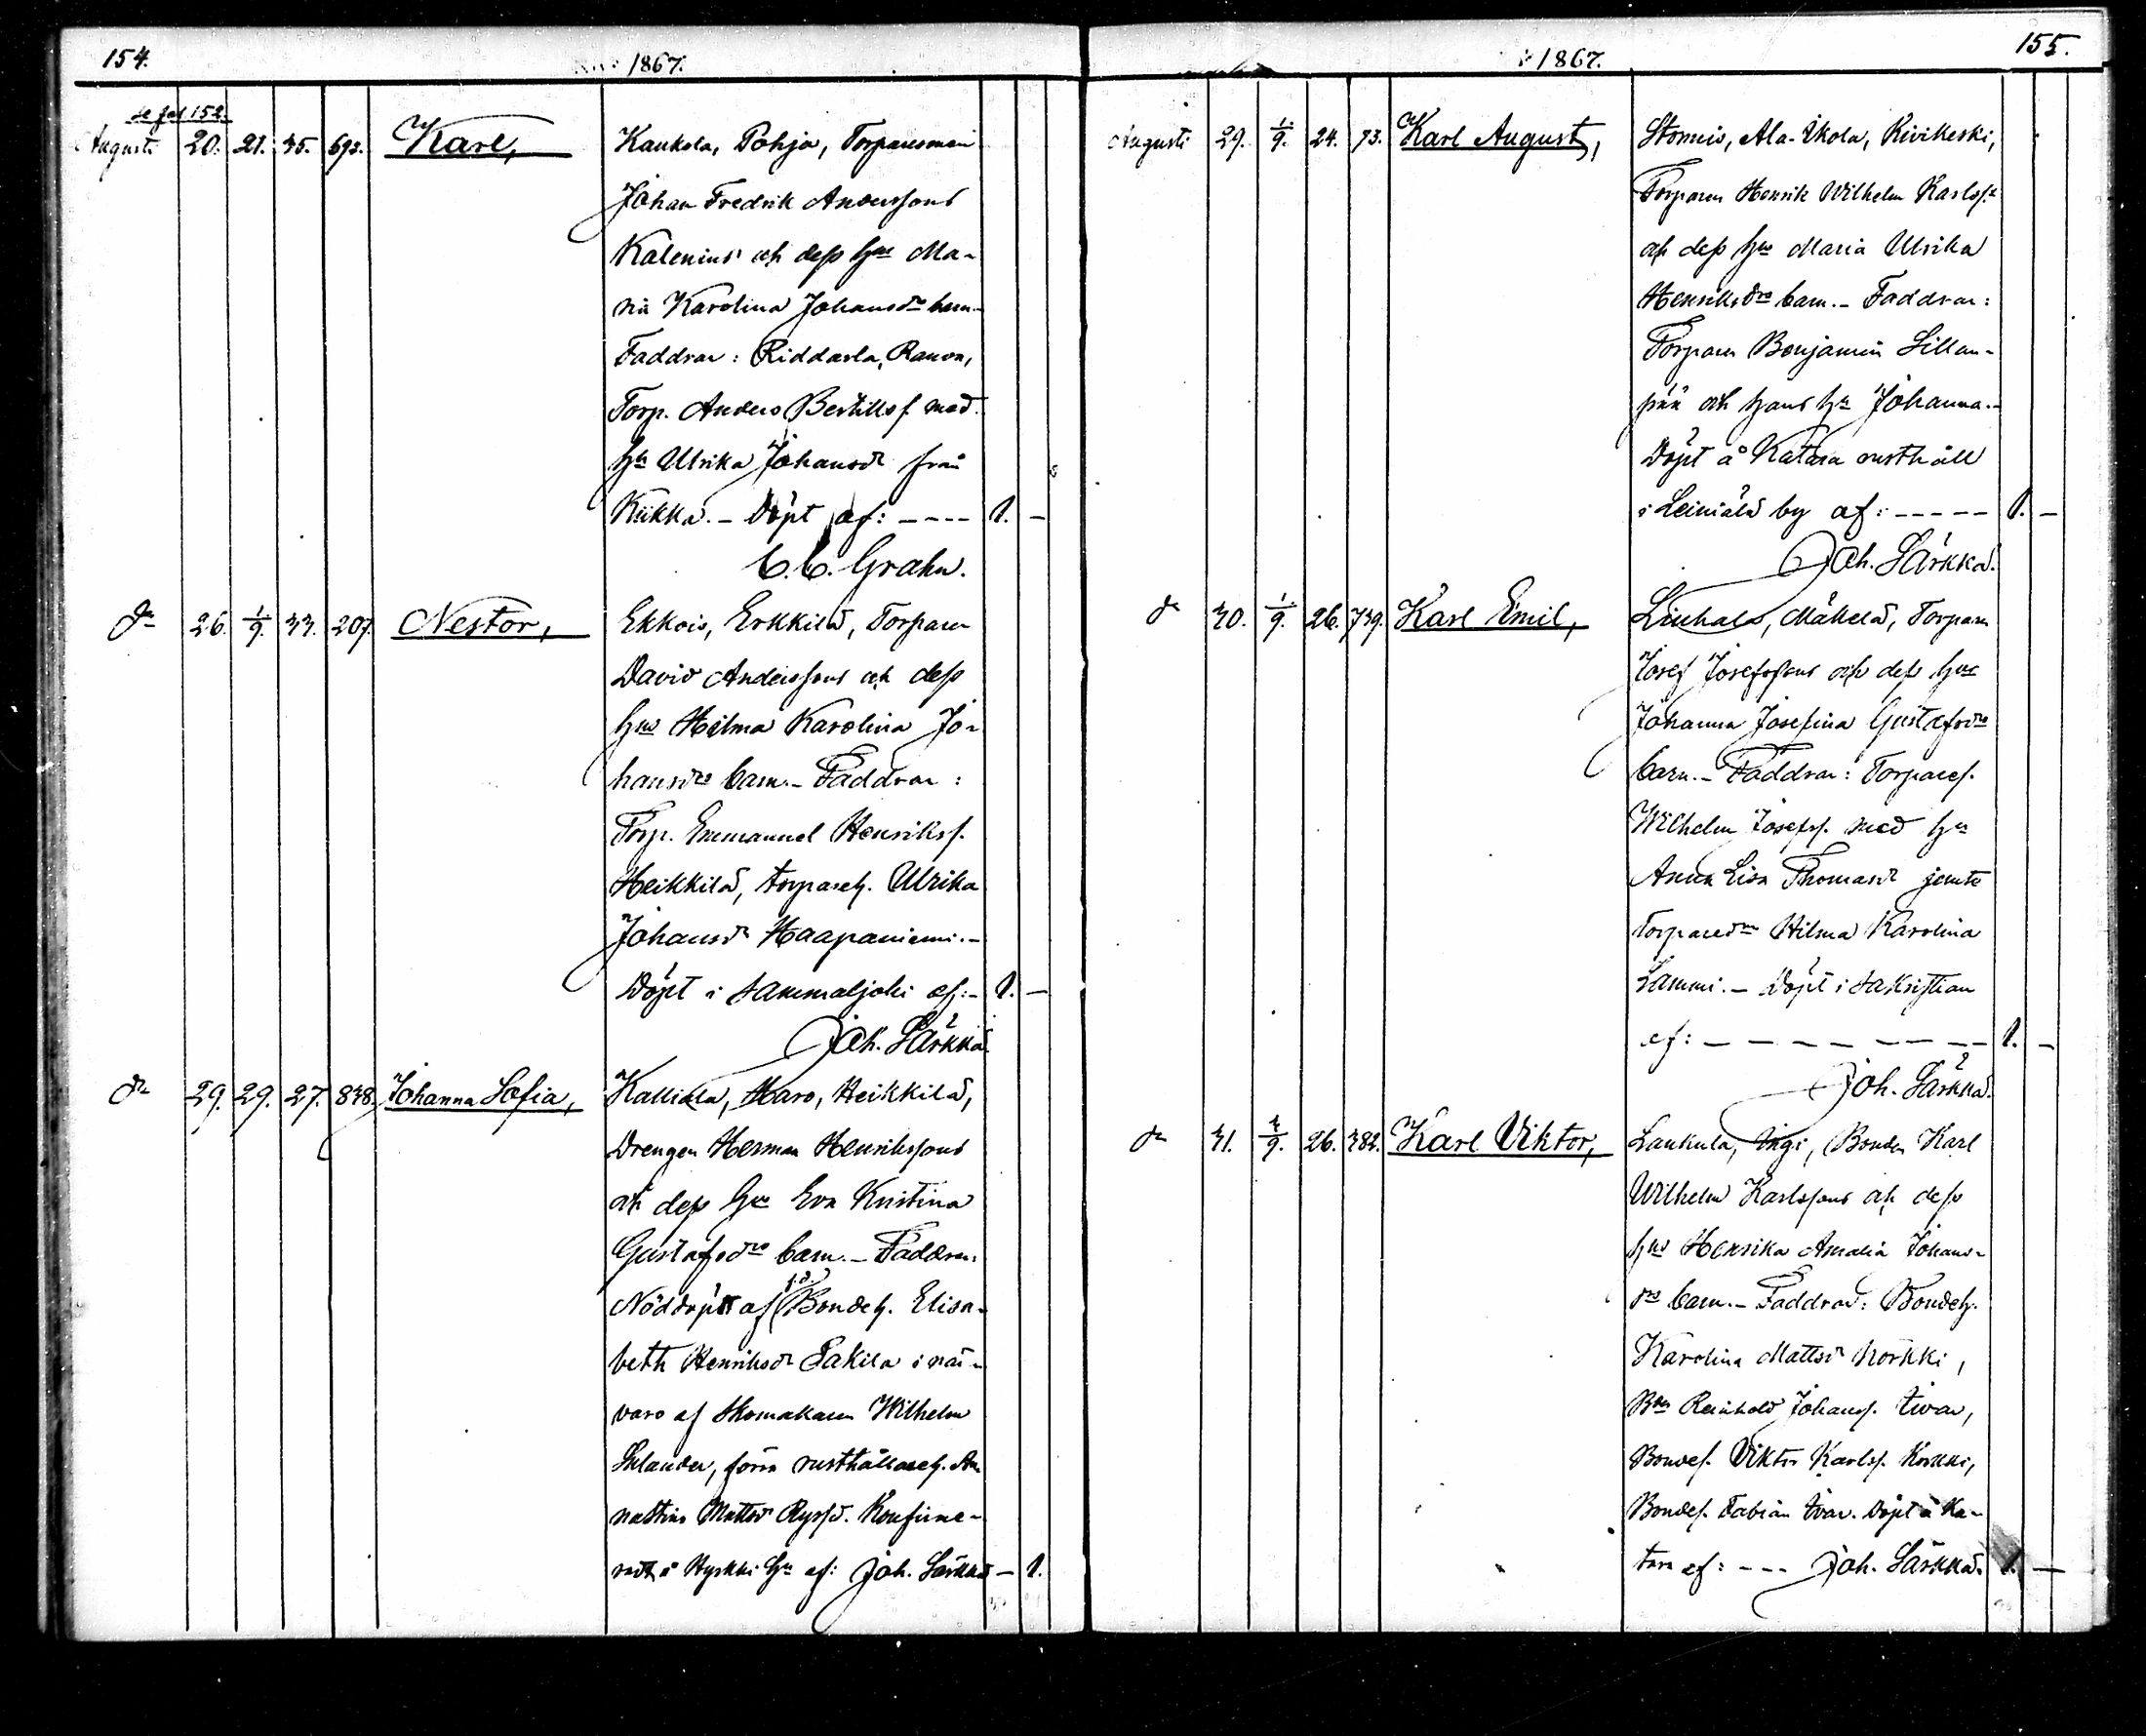 154.
1867.
se fol 152.
Augusti 20. 21. 35. 693. Karl, Kaukola, Pohja, Torparesonen
Johan Fredrik Anderssons
Kalenius och dess hus Ma-
ria Karolina Johansdrs barn.-
Faddrar: Riddarla, Ranva,
Torp. Anders Bertillsf. med
hu Ulrika Johansdr från
Kiikka. - Döpt af: - - - - 1. -
C. C. Grahn.
dn 26. 1/9. 33. 207. Nestor, Ekkois, Erkkilä, Torparen
David Anderssons och dess
hus Hilma Karolina Jo-
hansdrs barn. - Faddrar:
Torp. Emmanuel Henriksf.
Heikkilä, torpareh. Ulrika
Johansdr Haapaniemi. -
Döpt i Sammaljoki af: - 1. -
Joh. Särkkä.
dn 29. 29. 27. 838. Johanna Sofia, Kalliala, Haro, Heikkilä,
Drengen Herman Henrikssons
och dess hus Eva Kristina
Gustafsdrs barn. - Faddrar:
Nöddöpt af f.d. Bondeh. Elisa-
beth Henriksdr Pakila i när-
varo af Skomakaren Wilhelm
förra rusthållareh. An-
nastina Mattsdr Konfirme-
radt i Hyrkki hn af: Joh. Särkkä - 1.
155.
1867.
Augusti 29. 1/9. 24. 73. Karl August, Stormis, Ala-Ikola, Kivikeski,
Torparen Henrik Wilhelm Karlsf.
och dess hus Maria Ulrika
Henriksdrs barn. - Faddrar:
Torparen Benjamin Sillan-
pää och hans hu Johanna. -
Döpt å Katara rusthåll
i Leiniälä by af: - - - - - 1. -
Joh. Särkkä.
dn 30. 1/9. 26. 739. Karl Emil, Liuhala, Mäkelä, Torparen
Josef Josefssons och dess hus
Johanna Josefina Gustafsdrs
barn. - Faddrar: Torparesf.
Wilhelm Josefsf. med hu
Anna Lisa Thomasdr jemte
Torparedtr Hilma Karolina
Lammi. - Döpt i Sakristian
af: - - - - - - - 1. -
Joh. Särkkä.
dn 31. 3/9. 26. 382. Karl Viktor, Laukula, Yngi, Bonden Karl
Wilhelm Karlssons och dess
hus Henrika Amalia Johans-
drs barn. - Faddrar: Bondeh.
Karolina Mattsdr Körkki,
Bden Reinhold Johansf. Iivar,
Bondes. Viktor Karlsf. Korkki,
Bondes. Fabian Ivar. Döpt å Ka-
tara af: - - - Joh. Särkkä. 1. -